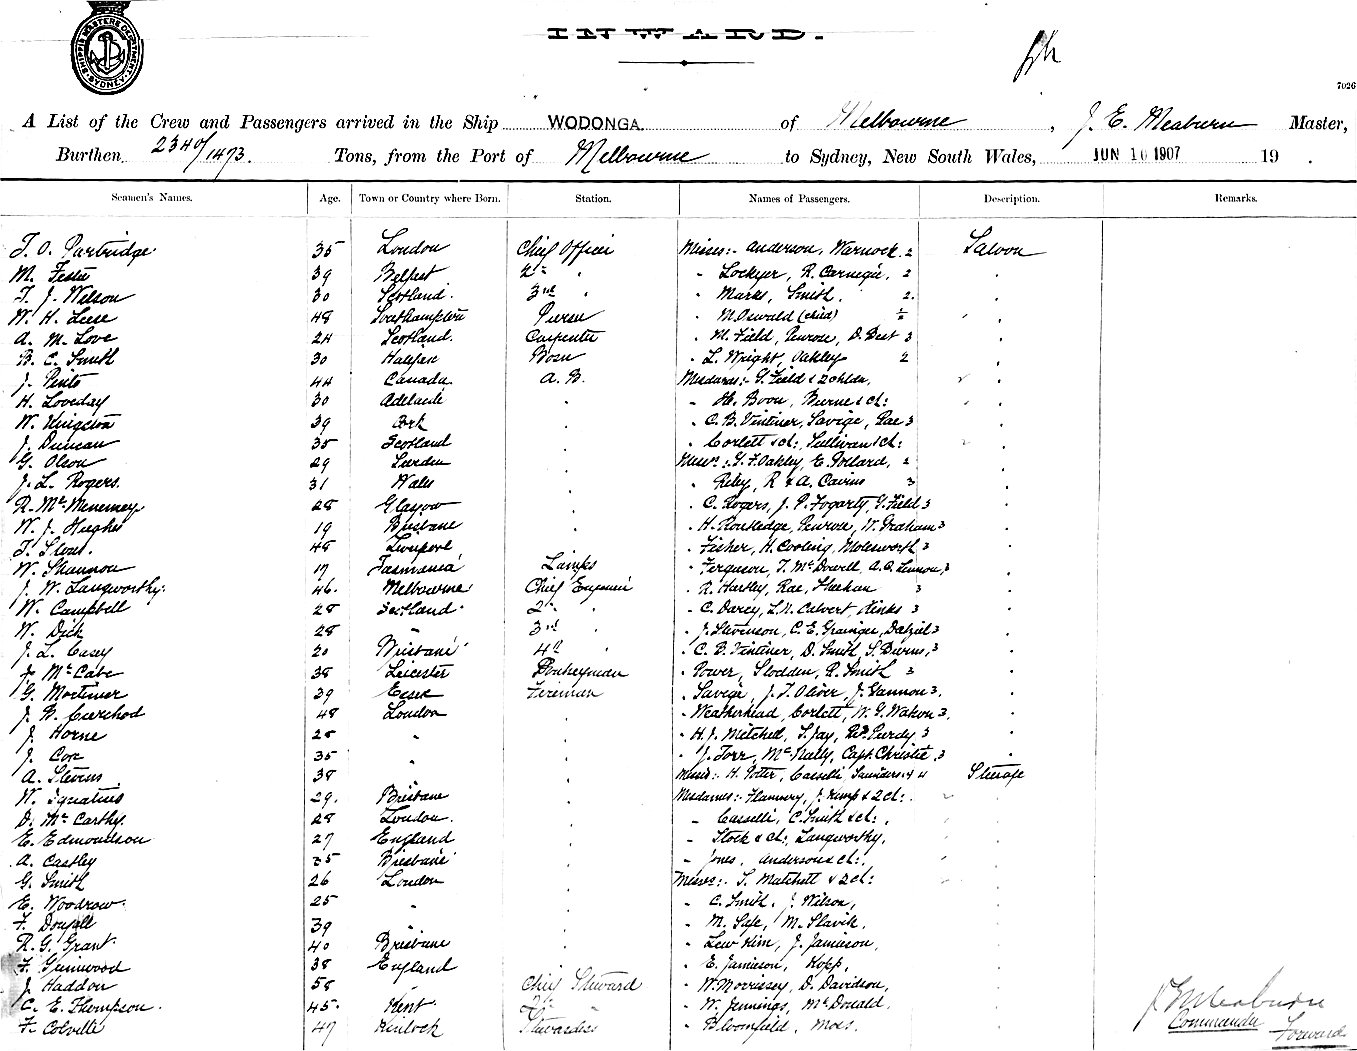 SHIPPING MASTERS DEPARTMENT. SYDNEY
INWARD.
7026
A List of the Crew and Passengers arrived in the Ship WODONGA of Melbourne, J. E. Meaburn Master,
Burthen 2340/1473. Tons, from the Port of Melbourne to Sydney, New South Wales, JUN 10 1907 19 .
Seamen's Names. Age. Town or Country where Born. Station. Names of Passengers. Description. Remarks.
T. O. Partridge 35 London Chief Officer Misses:- Anderson, Warnock. 2 Saloon
M. 39 Belfast 2nd " " Lockyer, R. Carnegie, 2 "
T. J. Wilson 30 Scotland. 3rd " " Marks, Smith, 2. "
W. H. Leese 48 Southampton Purser " M. Oswald (child) 1/2 "
A. M. Love 24 Scotland. Carpenter " M. Field, Penrose, D. Best 3 "
B. C. Smith 30 Halifax Bosn " L. Wright, Oakley 2 "
J. Pinto 44 Canada A. B. Mesdames:- G. Field & 2 chldn, "
H. Loveday 30 Adelaide " " Boon, Burne & ch: "
W. Kingston 39 Cork " " C. B. Vintiner, Savige, Rae 3 "
J. Duncan 35 Scotland " " Corlett & ch: Sullivan & ch: "
G. Olson 29 Sweden " Messrs:- G. F. Oakley, E. Pollard, 2 "
J. L. Rogers. 31 Wales " " Riley, R & A. Cavins 3 "
R. McMenemey 28 Glasgow " " C. Rogers, J. P. Fogarty, G. Field 3 "
W. J. Hughes 19 Brisbane " " H. Routledge, Penrose, W. Graham 3 "
T. 48 Liverpool " " Fisher, H. Cooling, Molesworth 3 "
W. Shannon 17 Tasmania Lamps " Ferguson, T. McDowell, A. A. Lennon, 3 "
J. W. Langworthy. 46. Melbourne Chief Engineer " R. Hartley, Rae, Sheehan 3 "
W. Campbell 28 Scotland 2nd " " C. Darcy, L. N. Calvert, Hinks 3 "
W. Dick 28 " 3rd " " J. Stevenson, C. E. Grainger, Dalziel 3 "
J. L. Casey 20 Brisbane 4th " " C. B. Vintiner, D. Smith, S. Burns, 3 "
J. McCabe 38 Leicester Donkeyman " Power, Slodden, R. Smith 3 "
G. Mortimer 39 Essex Fireman " Savige, J. T. Oliver, J. Gannon 3. "
J. B. 48 London " " Weatherhead, Corlett, W. G. Watson 3, "
J. Horne 28 " " " H. J. Mitchell, S. Jay, Purdy 3 "
J. Cox 35 " " " J. Torr, McNally, Capt. Christie, 3 "
A. Stevens 38 " Messrs:- H. Potter, Casselli, Saunders 4 Steerage
W. Ignatius 29. Brisbane " Mesdames:- Flannery, J. Kemp & 2 ch: "
D. McCarthy. 28 London. " " Casselli, C. Smith & ch: "
E. Edmondson 27 England " " Stock & ch: Langworthy, "
A. Castley 35 Brisbane " " Jones, Anderson & ch: "
G. Smith 26 London " Misses:- S. Matchett & 2 ch: "
E. Woodrow. 25 " " " C. Smith, J. Wilson, "
F. Dougall 39 " " " M. M. Slavik, "
R. G. Grant 40 Brisbane " " Lew Kim, J. Jamieson, "
F. Grimwood 38 England " " E. Jamieson, Kopp, "
J. Haddon 58 " Chief Steward " W. Morrissey, D. Davidson, "
C. E. Thompson. 45. Kent 2nd " " W. Jennings, McDonald, "
F. Colville 47 Kinlock Stewardess " Bloomfield, Moes. "
J E Meaburn
Commander